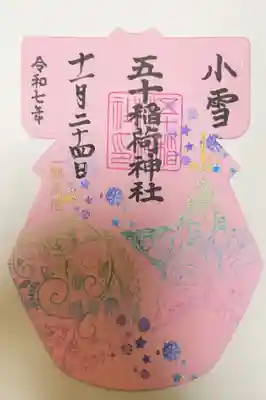 小雪
五十稲荷神社
十一月二十四日
令和七年